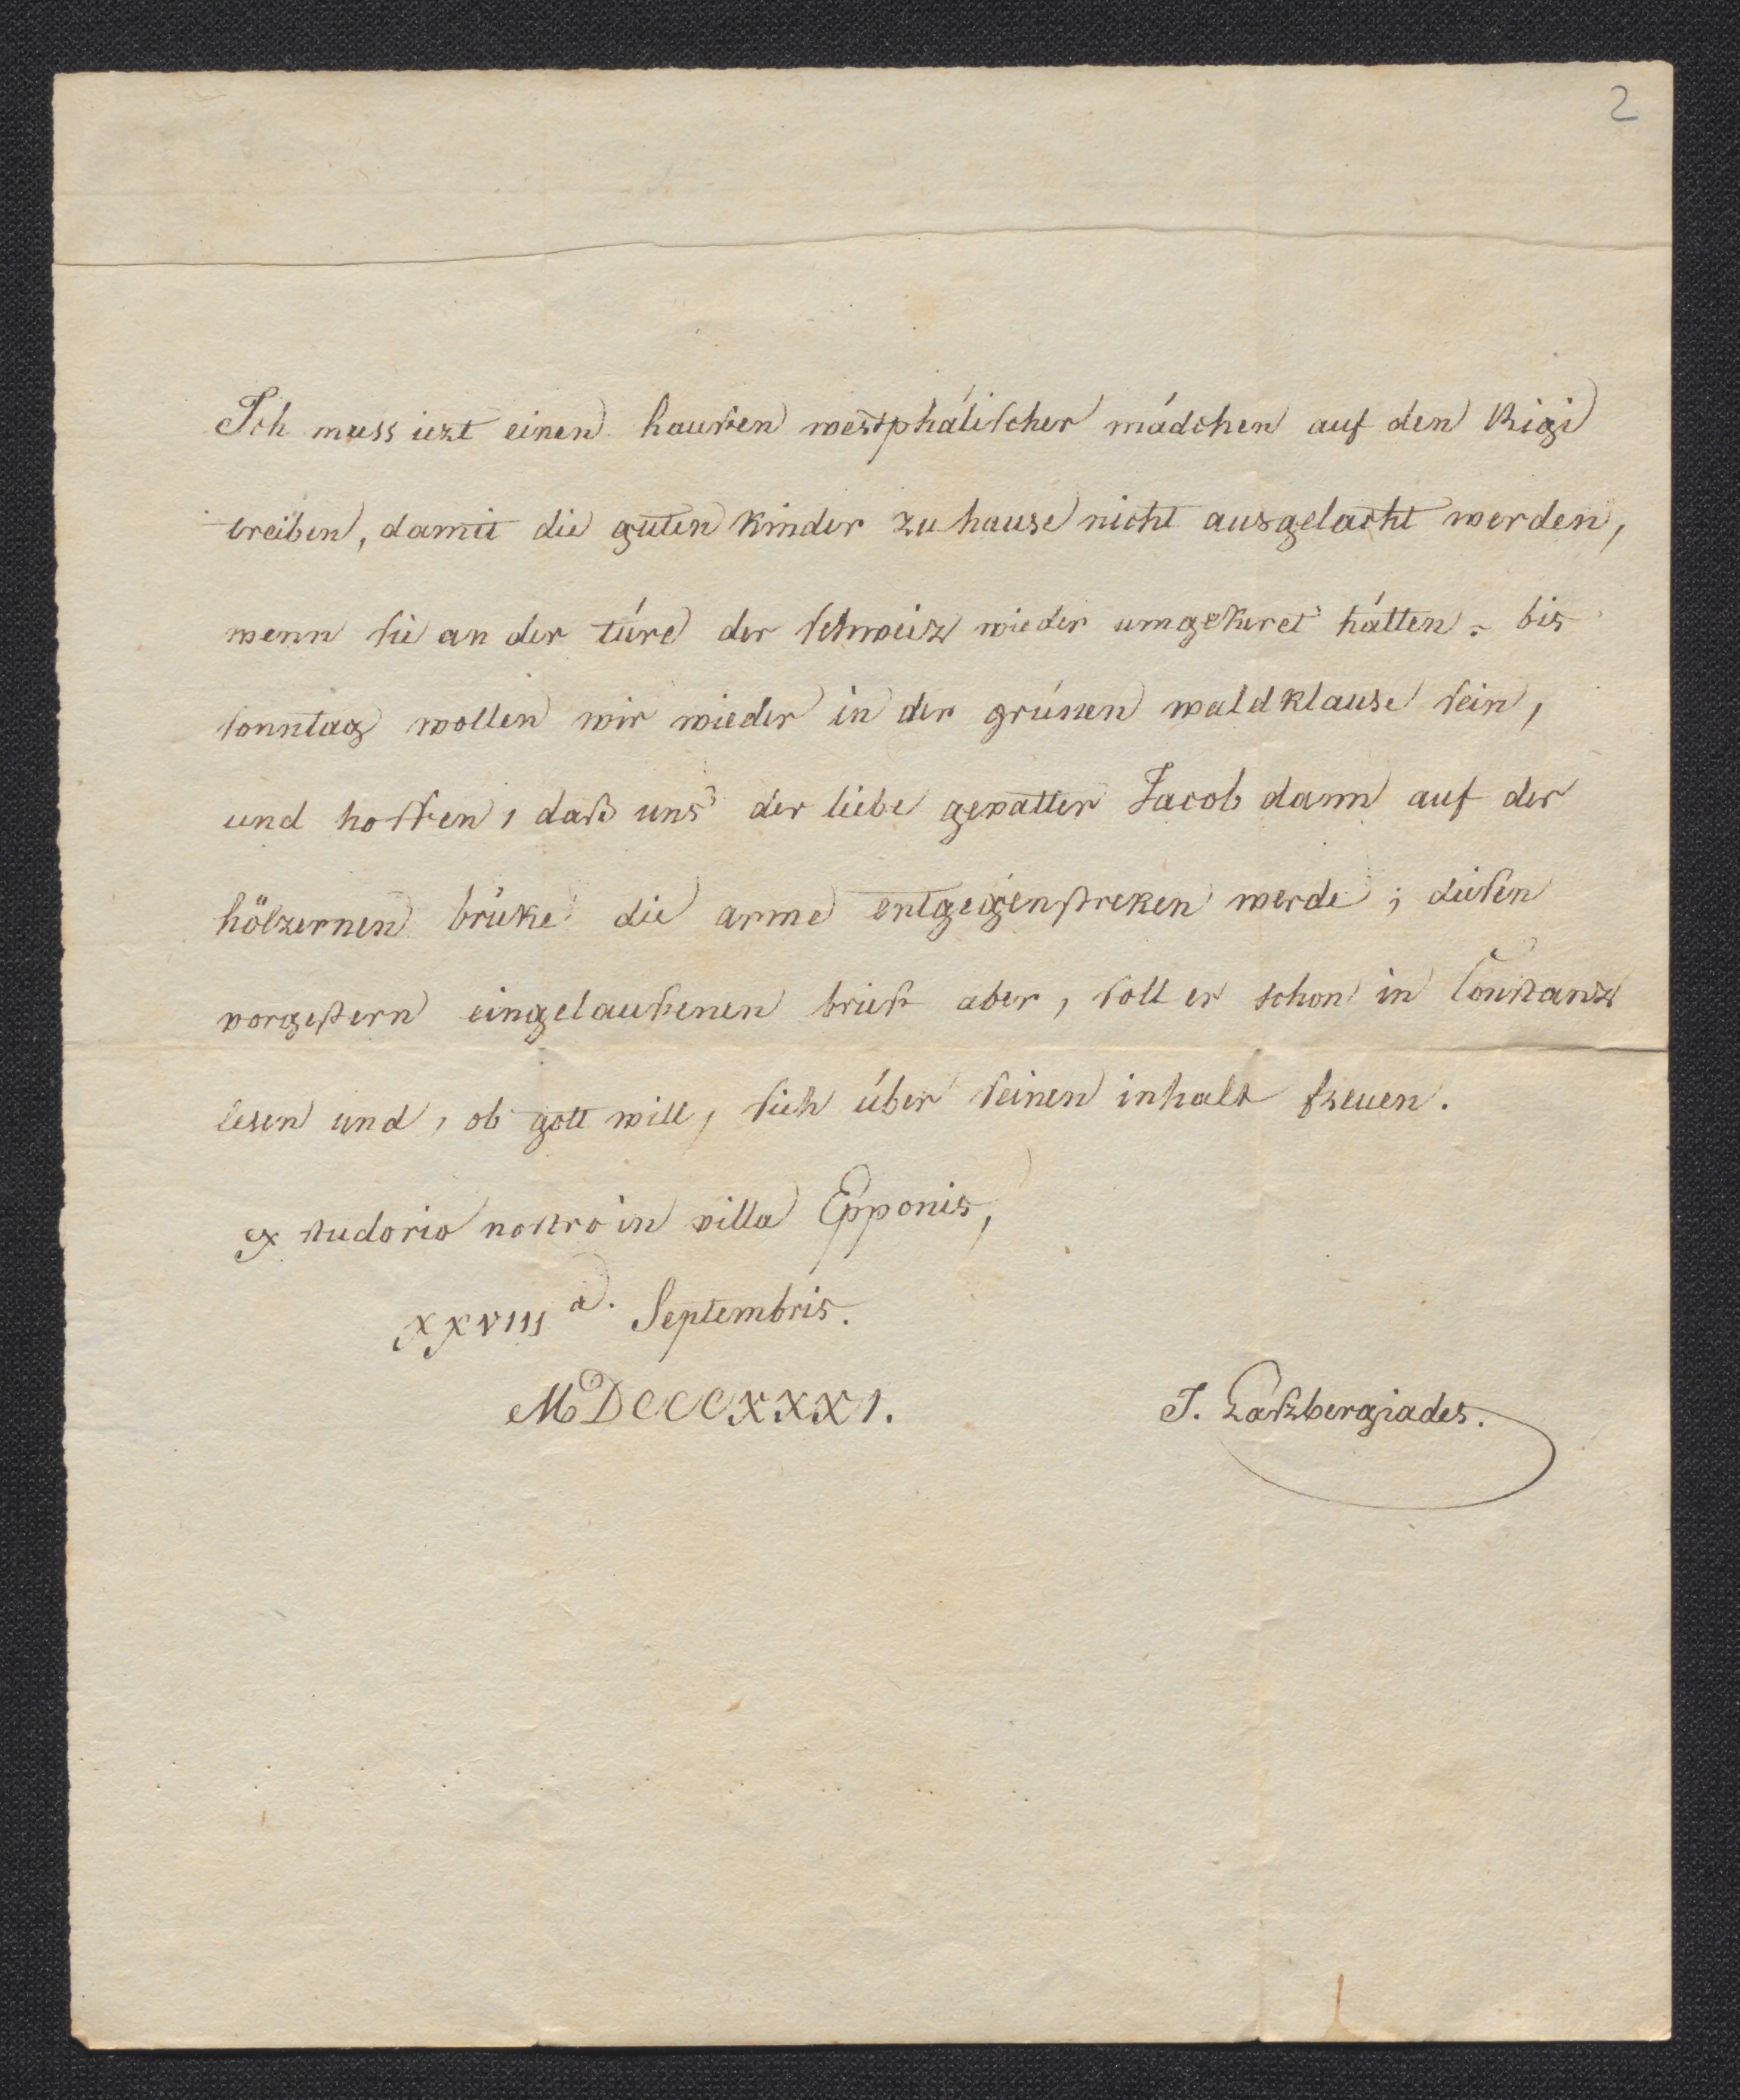 2
Ich muss iezt einen haufen westphälischer mädchen auf den Rigi
treiben, damit die guten kinder zu hause nicht ausgelacht werden,
wenn sie an der türe der schweiz wieder umgekeret hätten. bis
sonntag wollen wir wieder in der grünen waldklause sein,
und hoffen, daß uns der liebe gevatter Jacob dann auf der
hölzernen brüke die arme entgegenstreken werde; diesen
vorgestern eingelaufenen brief aber, soll er schon in Constanz
lesen und, ob gott will, sich über seinen inhalt freuen.
ex studorio nostro in villa Epponis,
XXVIII a. Septembris.
MDCCCXXXI.
J. Laßbergiades.